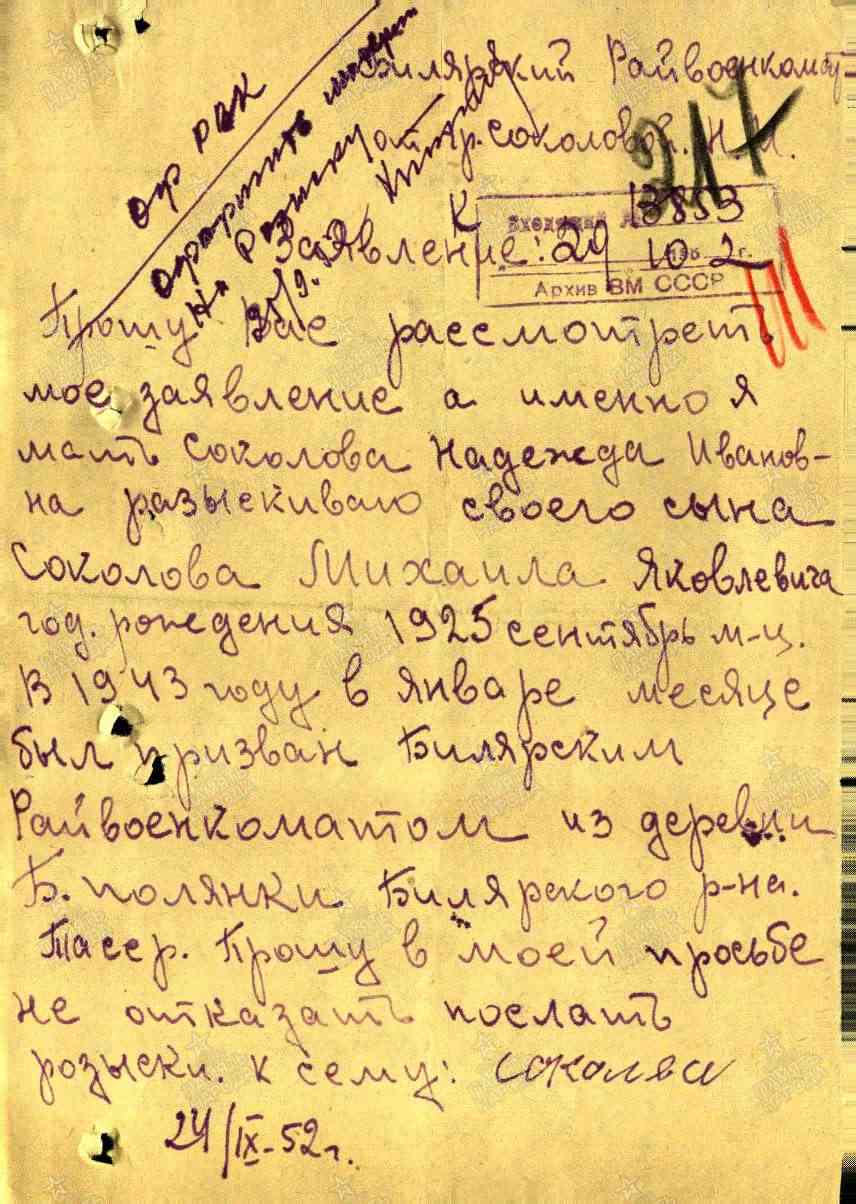 Билярский Райвоенкомат
от гр. Соколовой. Н. И.
217
оф РВК
Заявление:
Входящий № 13853
29 10 1952 г.
Архив ВМ СССР
Прошу Вас рассмотреть
мое заявление а именно я
мать Соколова Надежда Иванов-
на разыскиваю своего сына
Соколова Михаила Яковлевича
год. рождения 1925 сентябрь м-ц.
В 1943 году в январе месяце
был призван Билярским
Райвоенкоматом из деревни
Б. полянки Билярского р-на.
Тасср. Прошу в моей просьбе
не отказать послать
розыски. к сему: Соколова
24/IX-52 г.